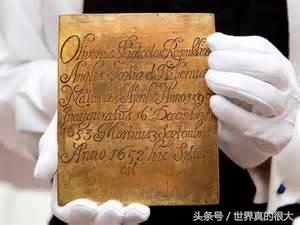 Oliverius Protector Republicæ
Angliæ Scotiæ et Hiberniæ
Natus 25 Aprilis Anno 1599
Inauguratus 16 Decembris
1653 Mortuus 3 Septembris
Anno 1658 hic Situs
est
头条号 / 世界真的很大